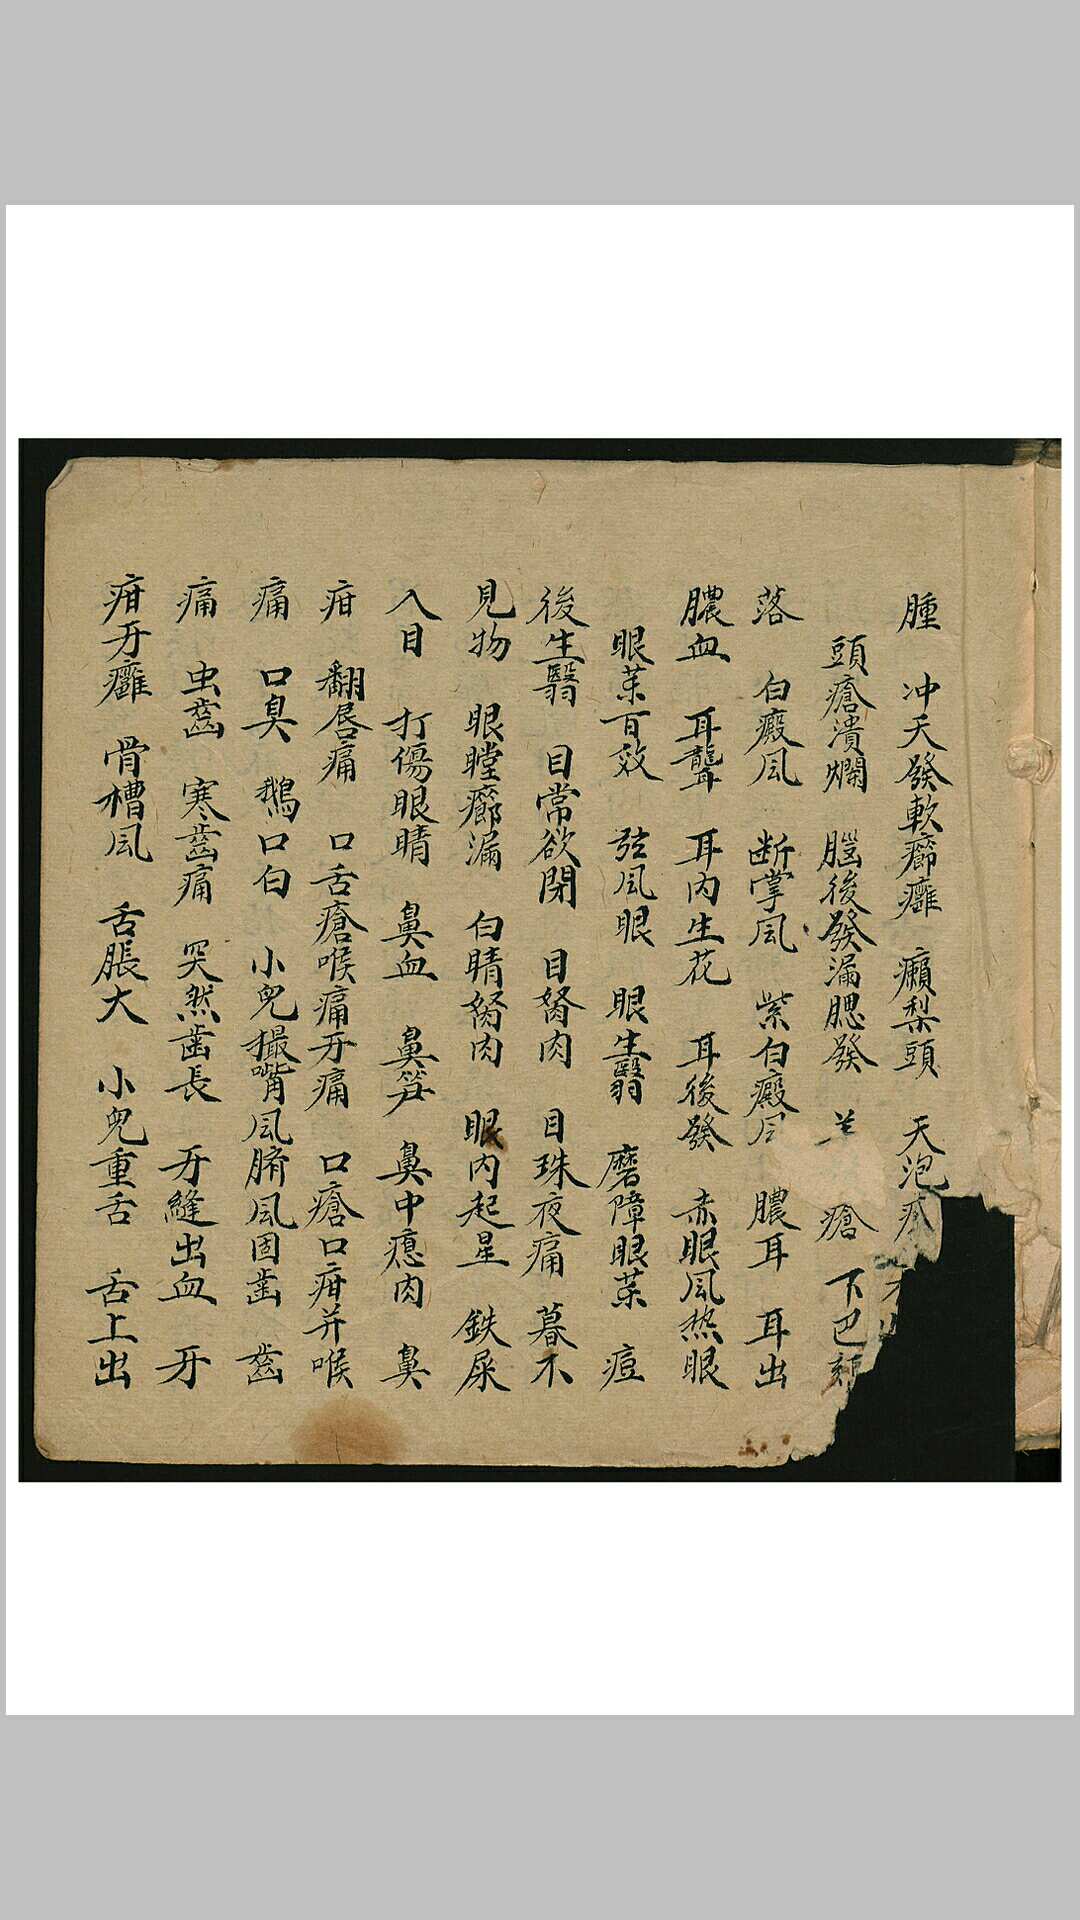 腫 冲天發軟癤癰 癩梨頭 天泡
頭瘡潰爛 腦後發漏腮發 瘡 下巴
落 白癜風 断掌風 紫白癜 膿耳 耳出
膿血 耳聾 耳内生花 耳後發 赤眼風热眼
眼茱百效 弦風眼 眼生翳 磨障眼茱 痘
後生翳 目常欲閉 目胬肉 目珠夜痛 暮不
見物 眼瞠癤漏 白睛胬肉 眼内起星 鉄屎
入目 打傷眼睛 鼻血 鼻笋 鼻中瘜肉 鼻
疳 翻唇痛 口舌瘡喉痛牙痛 口瘡口疳并喉
痛 口臭 鵝口白 小兒撮嘴風臍風固齒 齒
痛 虫齒 寒齒痛 突然齒長 牙縫出血 牙
疳牙癰 骨槽風 舌脹大 小兒重舌 舌上出